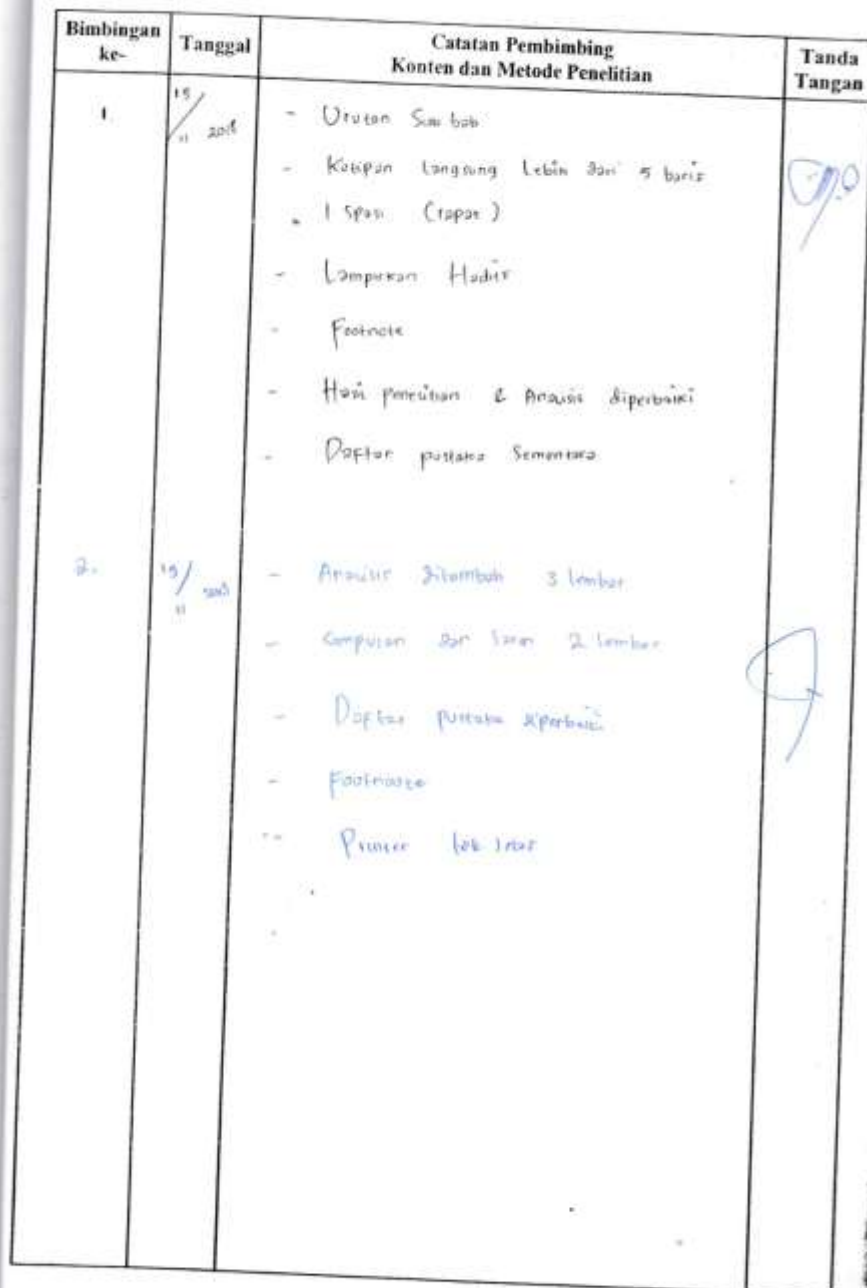 Bimbingan ke-
Tanggal
Catatan Pembimbing
Konten dan Metode Penelitian
Tanda Tangan
1
15/11 2018
- Urutan Sub bab
- Kutipan langsung lebih dari 5 baris
- 1 Spasi (rapat)
- Lampirkan Hadits
- Footnote
- Hasil penelitian & Analisis diperbaiki
- Daftar pustaka Sementara
2.
- Analisis ditambah 3 lembar
- dan Saran 2 lembar
- Daftar pustaka diperbaiki
- Footnoote